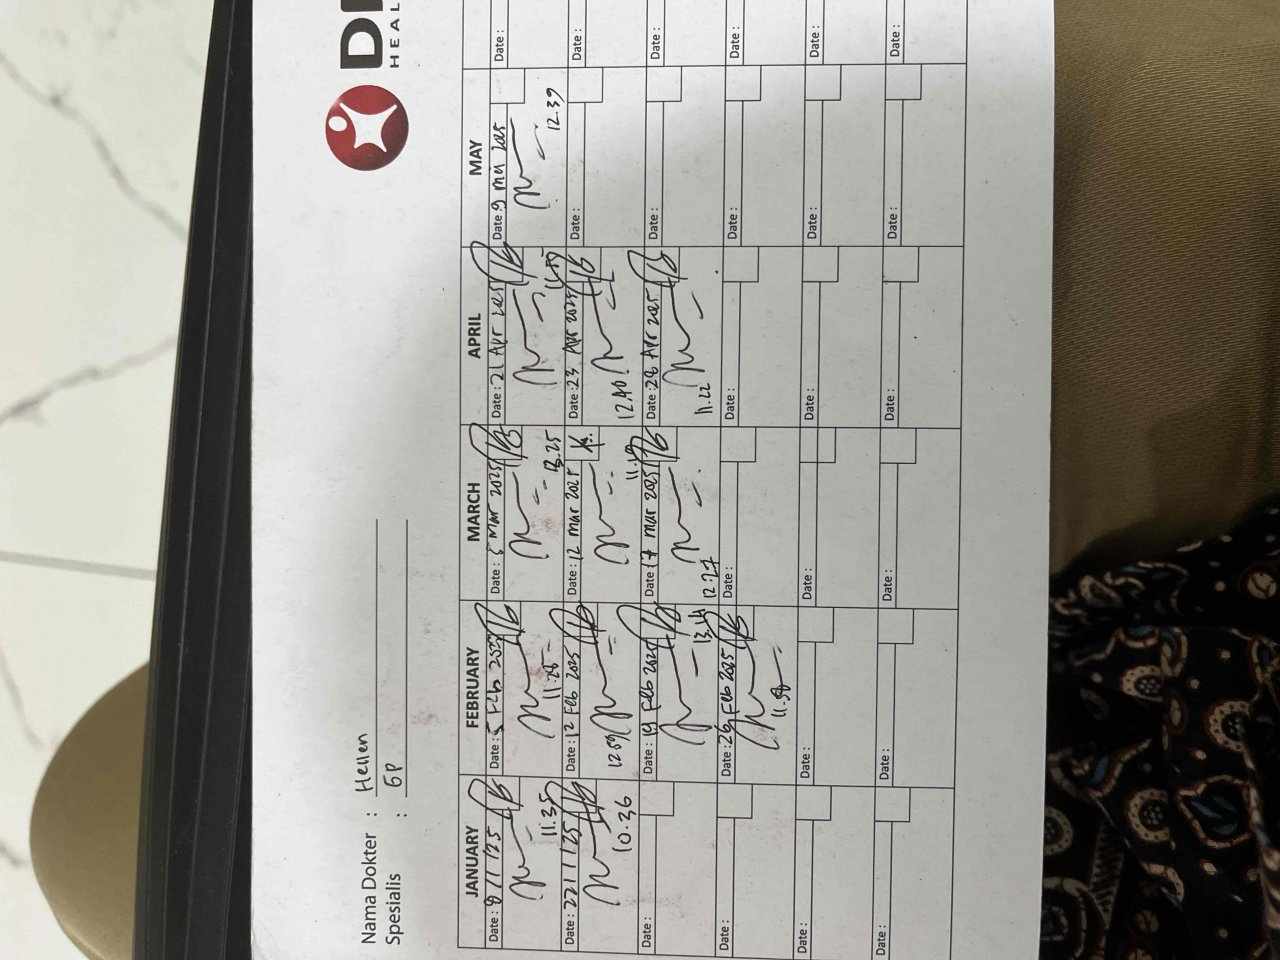 HEAL
Nama Dokter : Hellen
Spesialis : GP
JANUARY FEBRUARY MARCH APRIL MAY
Date: 8/1/25 Date: 5 Feb 2025 Date: 5 Mar 2025 Date: 21 Apr 2025 Date: 9 Mei 2025 Date:
11.35 11.28 13.25 12.39
Date: 22/1/25 Date: 12 Feb 2025 Date: 12 Mar 2025 Date: 23 Apr 2025 Date: Date:
10.36 12.59 11.19 12.40
Date: Date: 19 Feb 2025 Date: 17 Mar 2025 Date: 28 Apr 2025 Date: Date:
13.14 12.27 11.22
Date: Date: 26 Feb 2025 Date: Date: Date: Date:
11.58
Date: Date: Date: Date: Date: Date:
Date: Date: Date: Date: Date: Date: